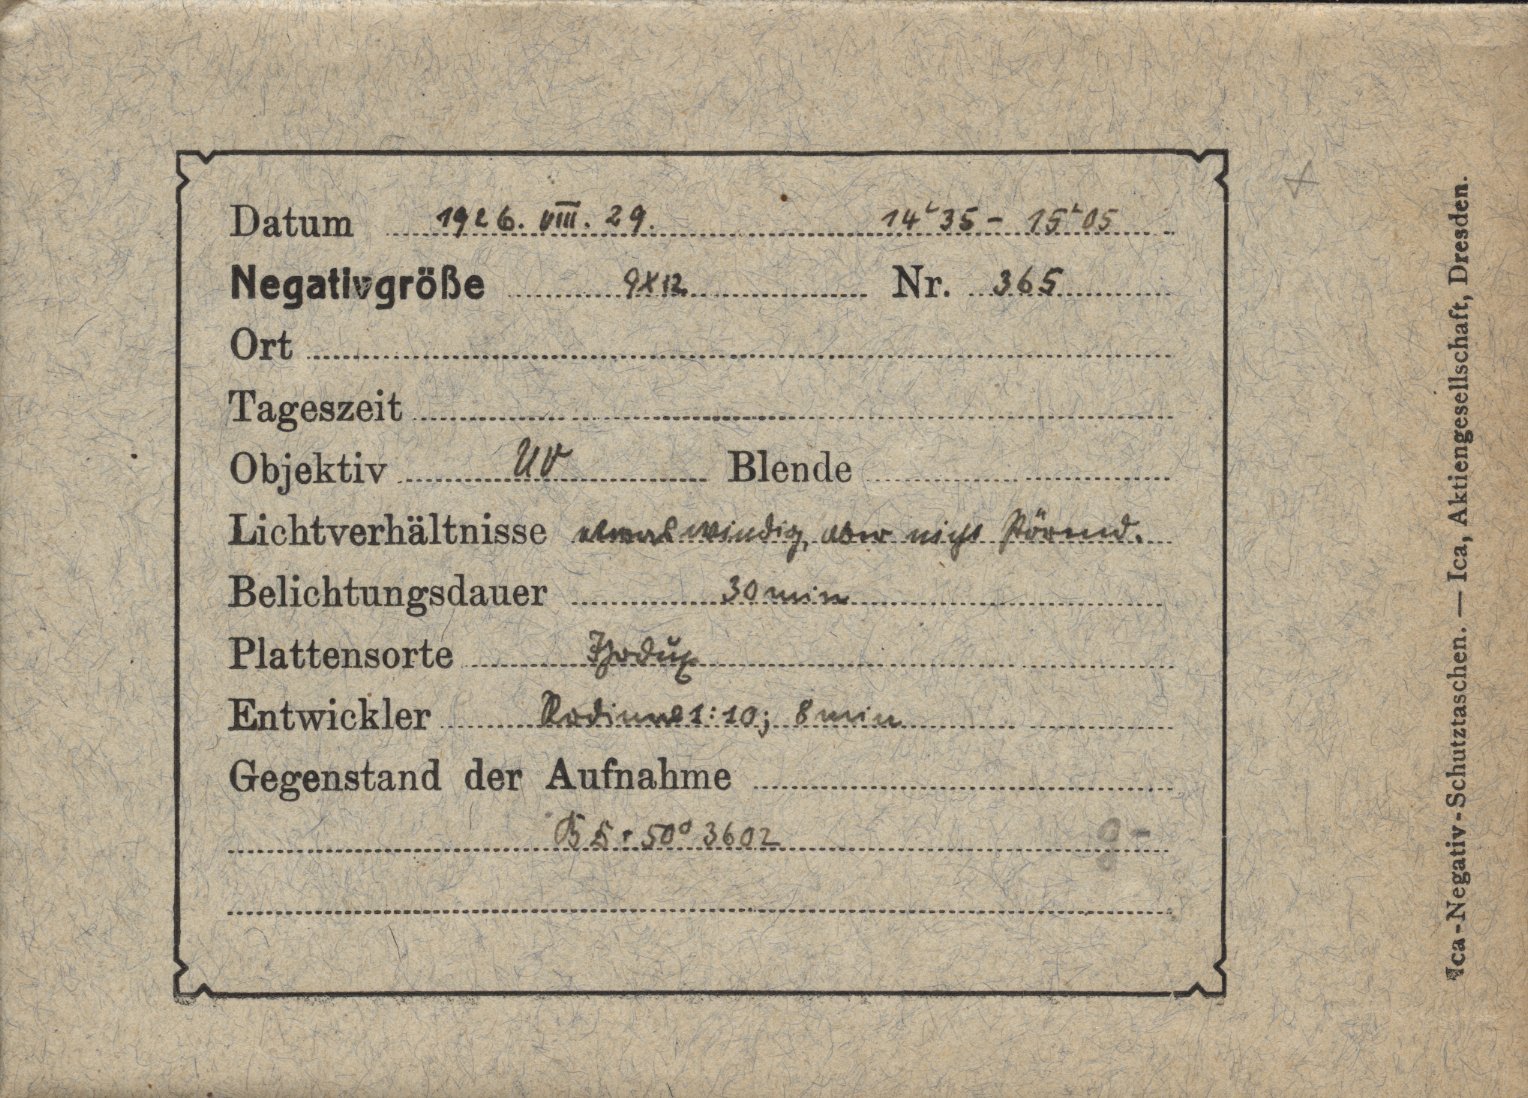 Datum 1926. VIII. 29. 14ʰ35 - 15ʰ05
Negativgröße 9x12 Nr. 365
Ort
Tageszeit
Objektiv UV Blende
Lichtverhältnisse etwas windig, aber nicht störend.
Belichtungsdauer 30 min
Plattensorte
Entwickler Rodinal 1:10; 8 min
Gegenstand der Aufnahme
+50° 3602
Ica-Negativ-Schutztaschen. — Ica, Aktiengesellschaft, Dresden.